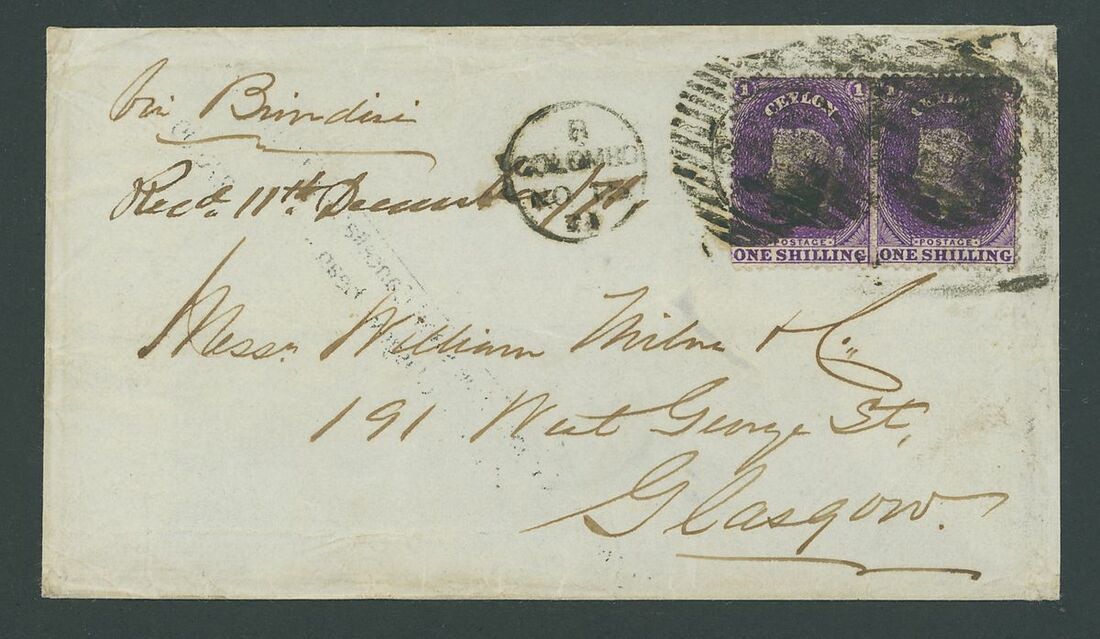 Via Brindisi
Recd. 11th December /71.
R
COLOMBO
NO
71
1 CEYLON 1
POSTAGE
ONE SHILLING
1
POSTAGE
ONE SHILLING
Messrs William Milne & Co.,
191 West George St,
Glasgow.